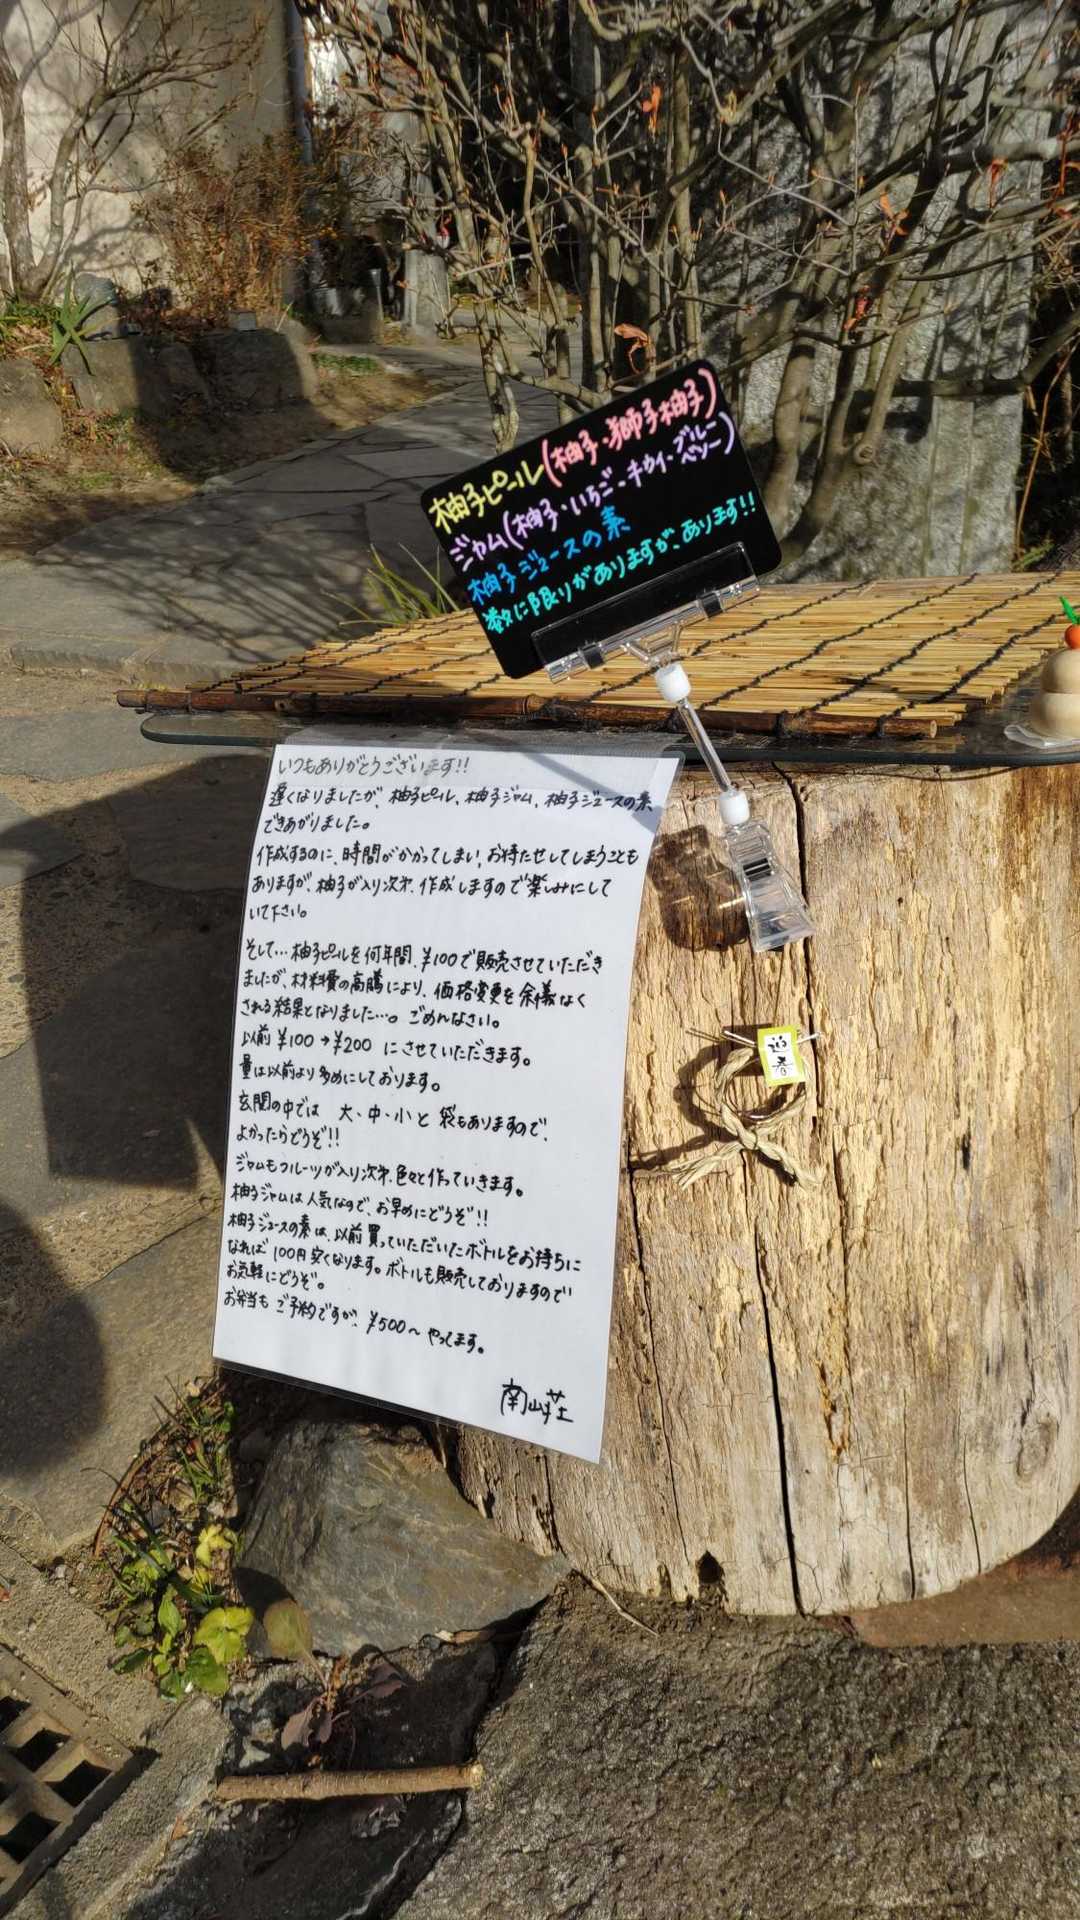 柚子ピール(柚子・獅子柚子)
ジャム(柚子・いちご・キウイ・ブルーベリー)
柚子ジュースの素
数に限りがありますが、あります!!
いつもありがとうございます!!
遅くなりましたが、柚子ピール、柚子ジャム、柚子ジュースの素
できあがりました。
作成するのに、時間がかかってしまい、お待たせしてしまうことも
ありますが、柚子が入り次才、作成しますので楽しみにして
いて下さい。
そして…柚子ピールを何年間、¥100で販売させていただき
ましたが、材料費の高騰により、価格変更を余儀なく
される結果となりました…。ごめんなさい。
以前¥100→¥200 にさせていただきます。
量は以前より多めにしております。
玄関の中では 大・中・小と袋もありますので、
よかったらどうぞ!!
ジャムもフルーツが入り次才、色々と作っていきます。
柚子ジャムは人気なので、お早めにどうぞ!!
柚子ジュースの素は、以前買っていただいたボトルをお持ちに
なれば 100円安くなります。ボトルも販売しておりますので
お気軽にどうぞ。
お弁当も ご予約ですが、¥500〜やってます。
南山荘
迎春